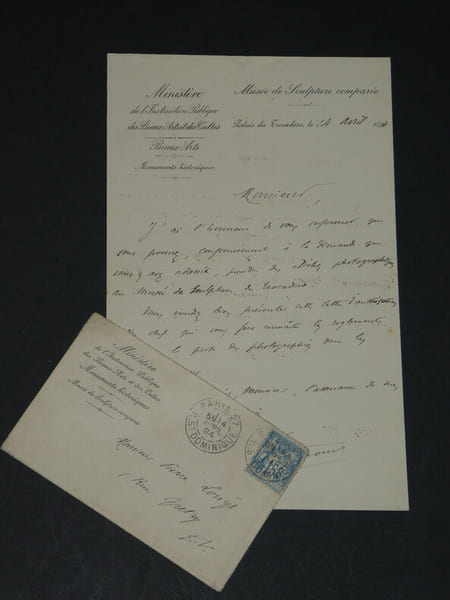 Ministère
de l'Instruction Publique
des Beaux-Arts et des Cultes
Beaux-Arts
Monuments historiques
Musée de Sculpture comparée
Palais du Trocadéro, le 14 Avril 1894
Monsieur,
J'ai l'honneur de vous informer que
vous pouvez, conformément à la demande que
vous y avez adressée, prendre des clichés photographiques
au Musée de Sculpture du Trocadéro.
Vous voudrez bien présenter cette lettre d'autorisation
au chef qui vous fera connaître les règlements
la photographie dans les
Monsieur, l'assurance de mes
Ministère
de l'Instruction Publique
des Beaux-Arts et des Cultes
Monuments historiques
Musée de Sculpture comparée
PARIS 27
14
AVRIL
94
R. ST DOMINIQUE
15
Monsieur Pierre Louÿs
1 Rue Grétry
E.V.